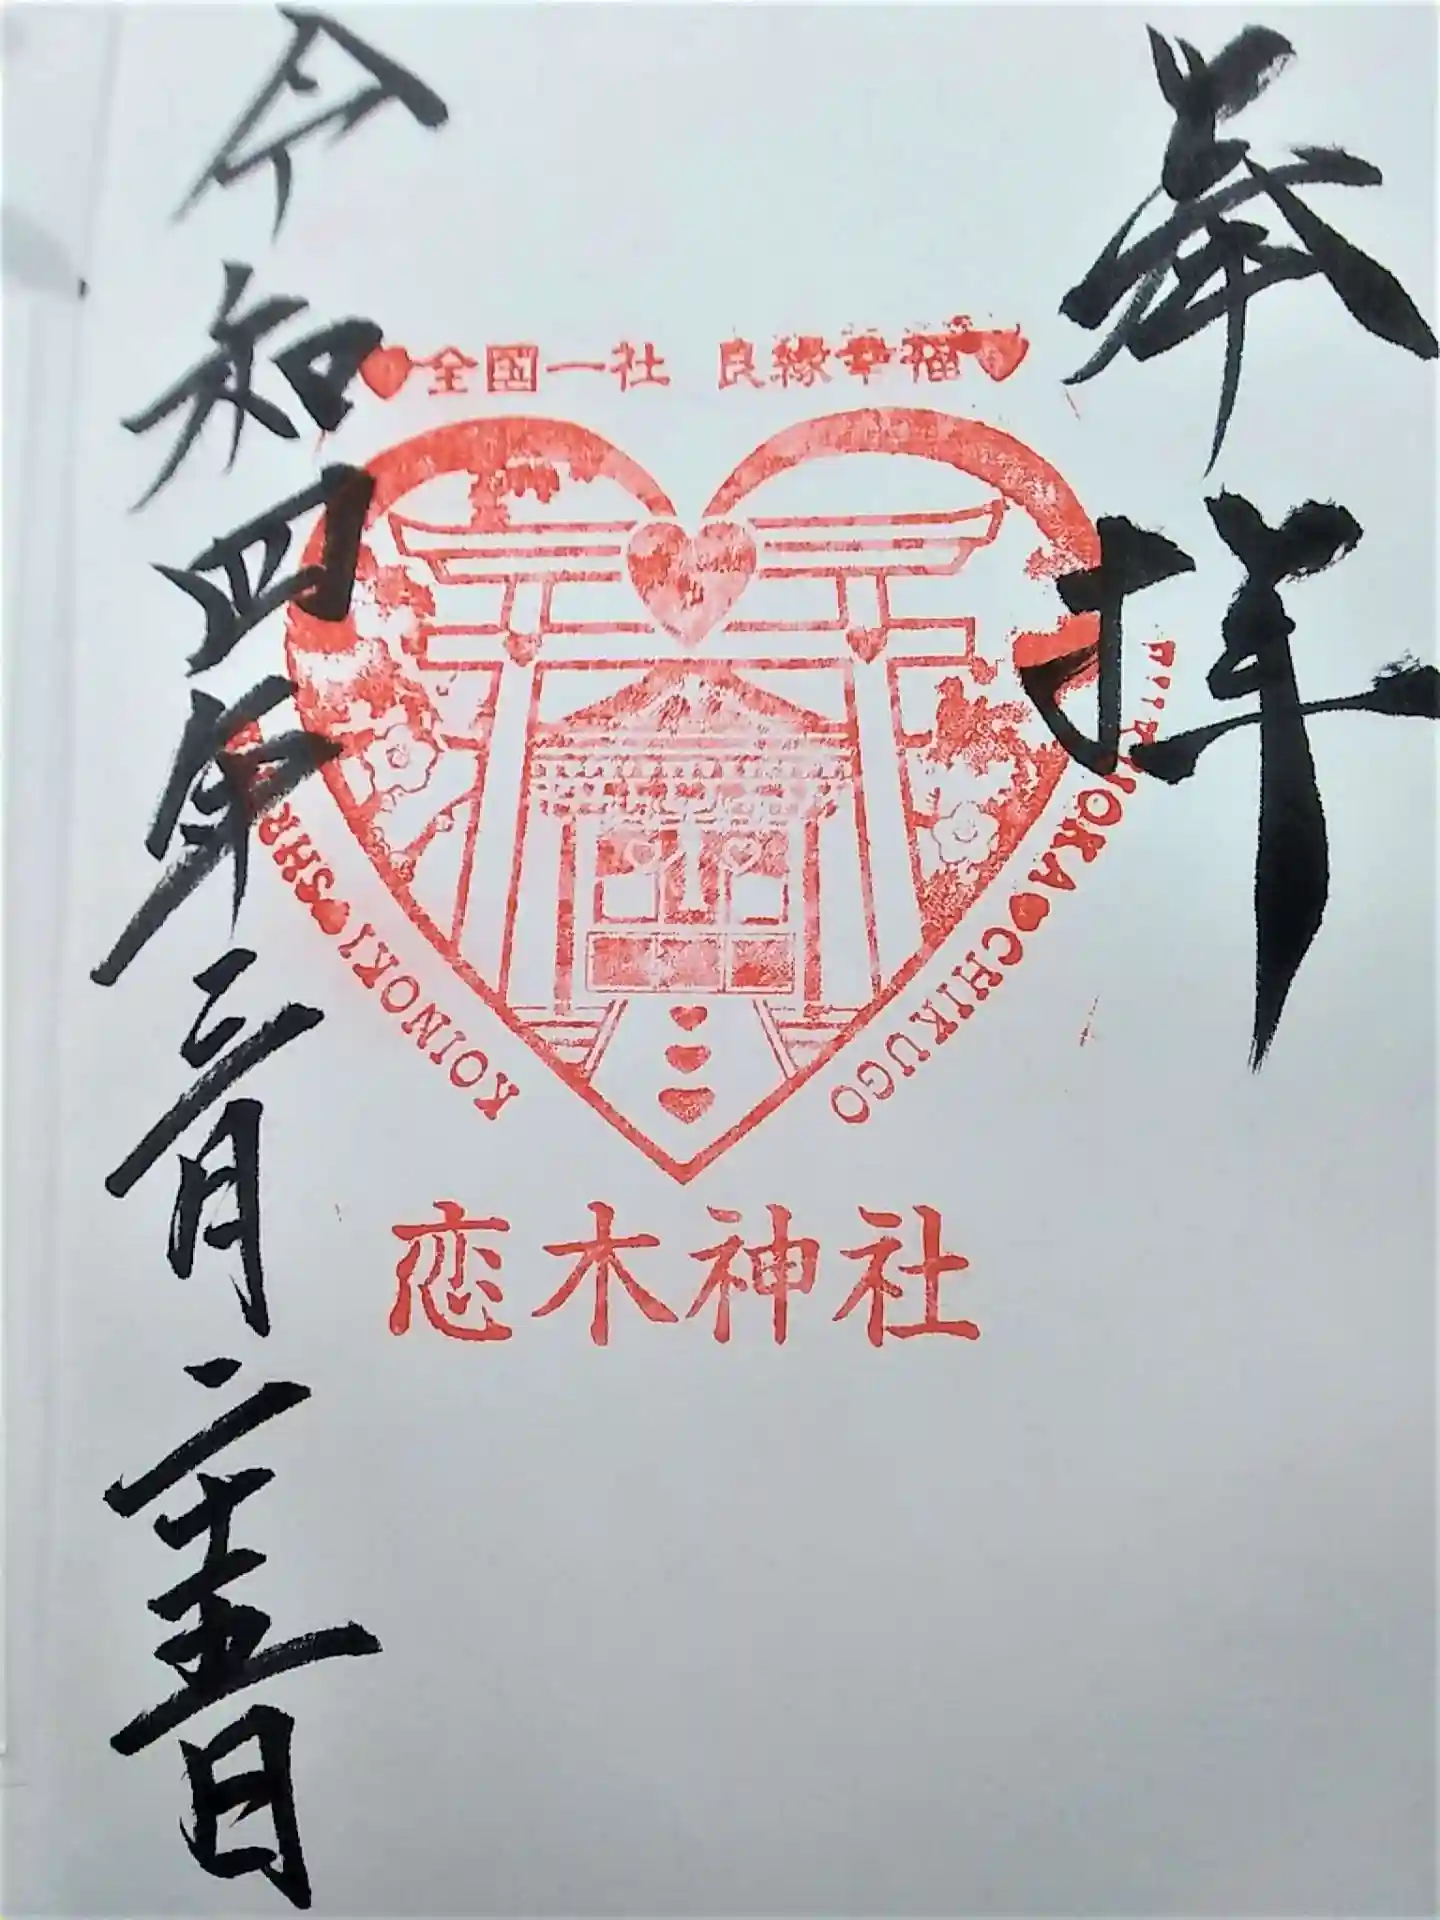 奉拝
全國一社 良縁幸福
KOINOKI♥SHR
CHIKUGO
恋木神社
令和四年三月二十五日